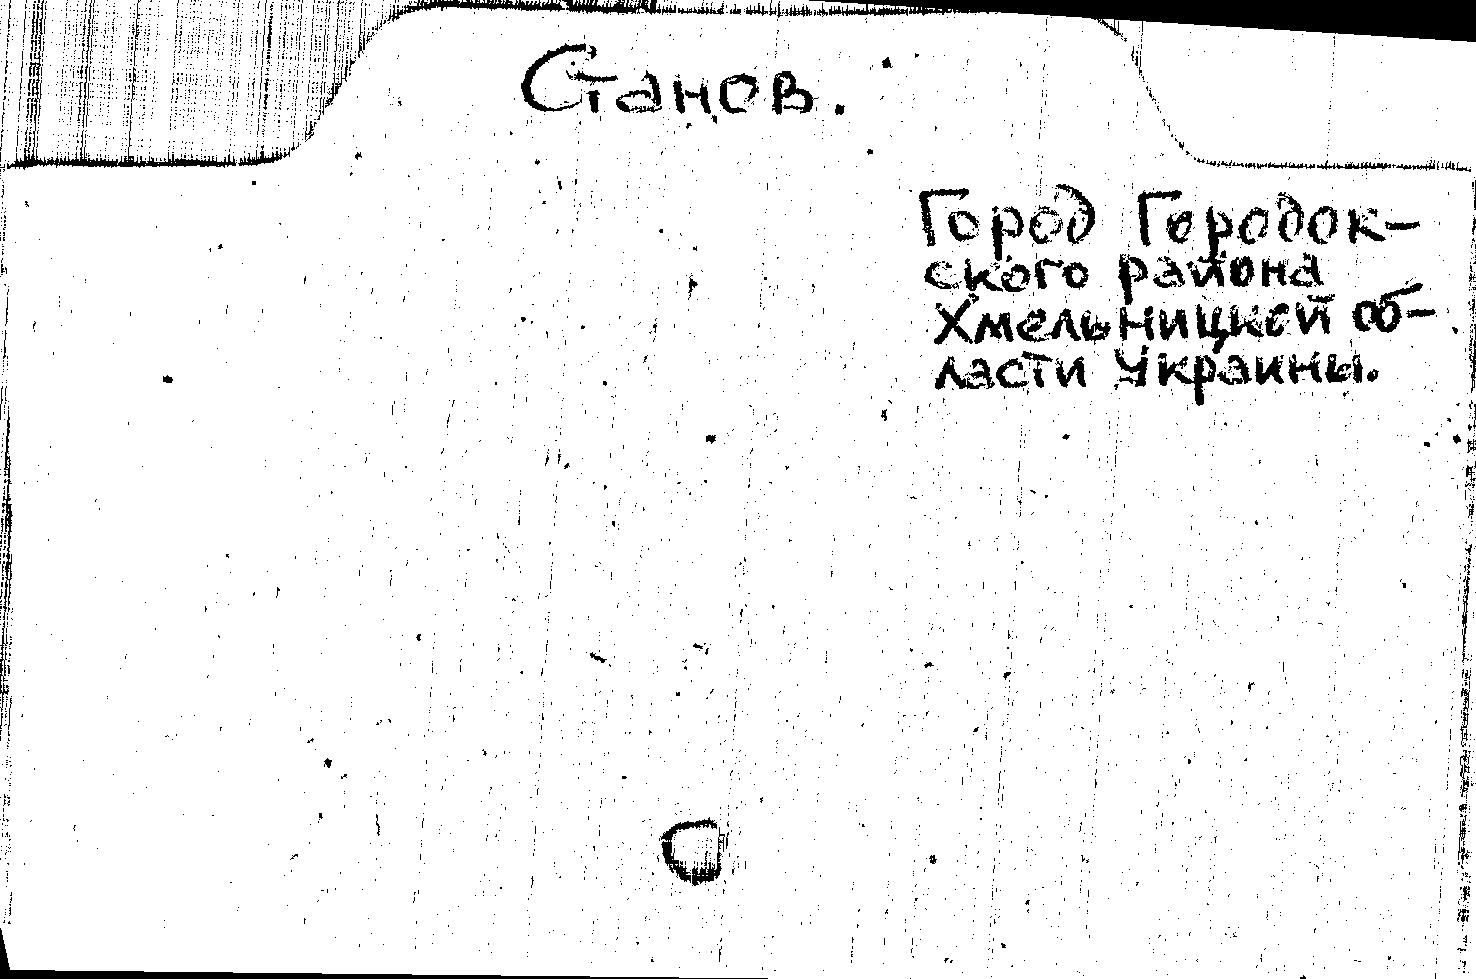 Станов.
Город Городок-
ского района
Хмельницкой об-
ласти Украины.